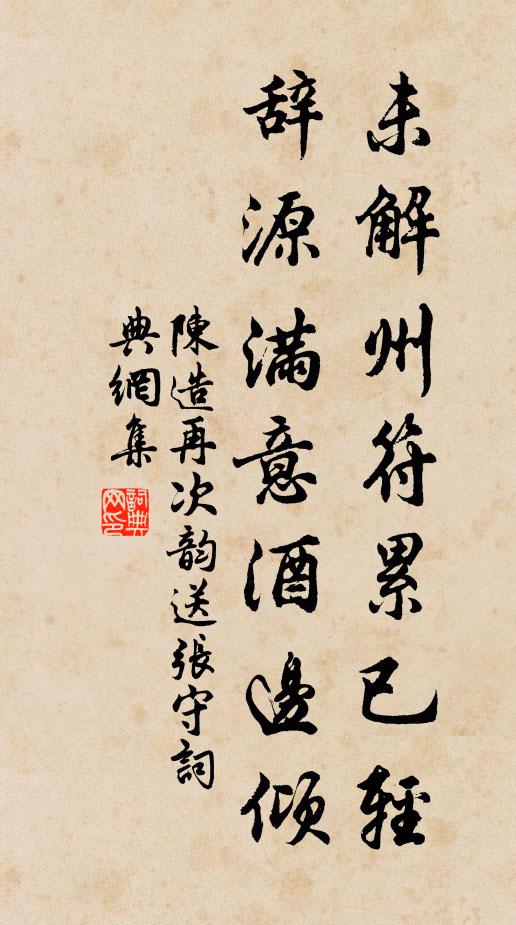 未解州符累已輕
辞源滿意酒邊傾
陳造再次韵送張守詞
典網集
詞典網印